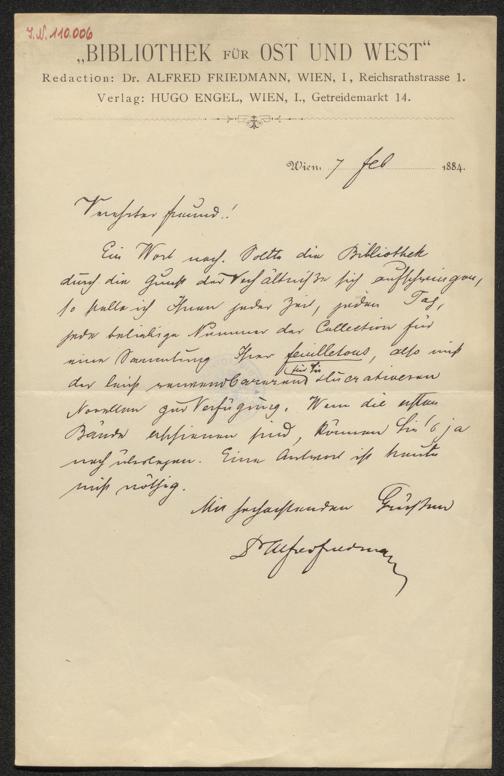 I.N. 110.006
„BIBLIOTHEK FÜR OST UND WEST“
Redaction: Dr. ALFRED FRIEDMANN, WIEN, I, Reichsrathstrasse 1.
Verlag: HUGO ENGEL, WIEN, I., Getreidemarkt 14.
Wien, 7 Feb 1884.
Verehrter Freund!
Ein Wort noch. Sollte die Bibliothek
durch die Gunst der Verhältniße sich aufschwingen,
so stelle ich Ihnen jeder Zeit, jeden Tag,
jede beliebige Nummer der Collection für
eine Sammlung Ihrer feuilletons, also mit
der leicht lucrativeren
für Sie
Novellen zur Verfügung. Wenn die ersten
Bände erschienen sind, können Sie's ja
noch überlegen. Eine Antwort ist heute
nicht nöthig.
Mit hochachtenden Grüßen
Dr Alfred Friedmann